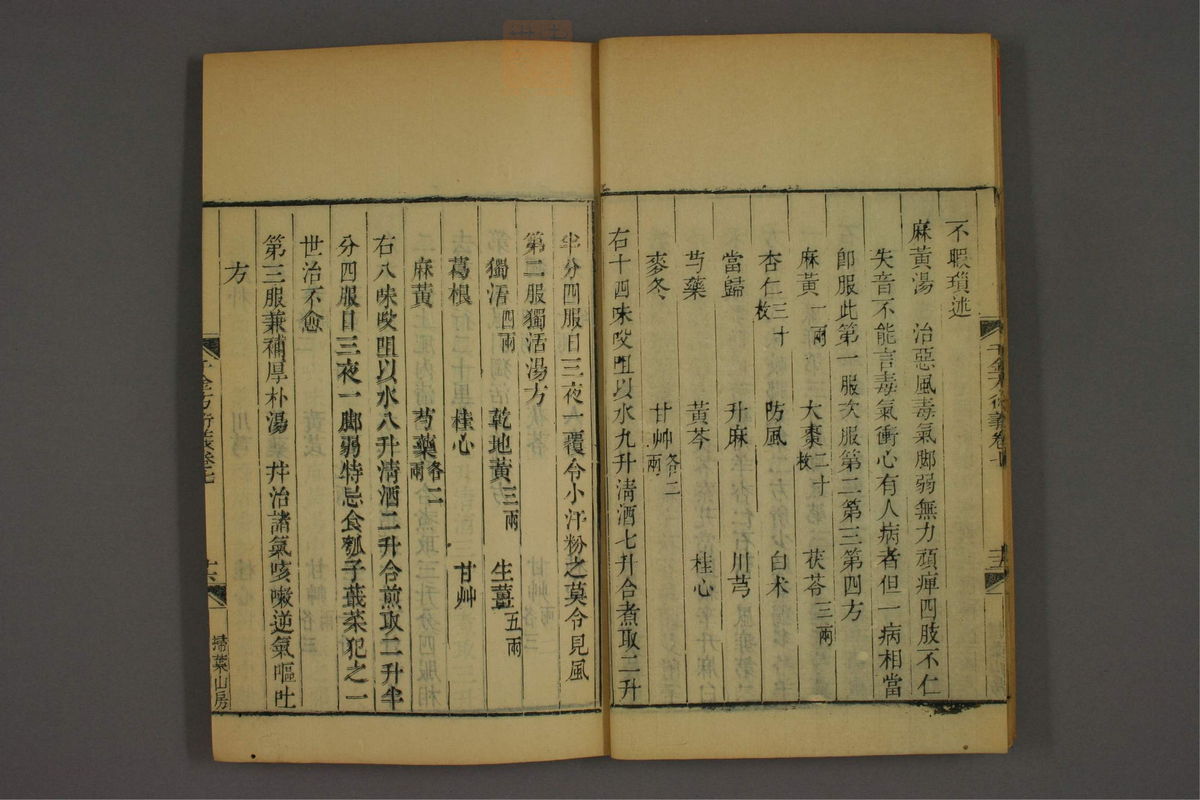 不暇瑣述
麻黃湯 治惡風毒氣脚弱無力頑痺四肢不仁
失音不能言毒氣衝心有人病者但一病相當
卽服此第一服次服第二第三第四方
麻黃一兩 大棗二十枚 茯苓三兩
杏仁三十枚 防風 白术
當歸 升麻 川芎
芍藥 黃芩 桂心
麥冬 甘艸各二兩
右十四味㕮咀以水九升淸酒七升合煮取二升
半分四服日三夜一覆令小汗粉之莫令見風
第二服獨活湯方
獨活四兩 乾地黃三兩 生薑五兩
葛根 桂心 甘艸
麻黃 芍藥各二兩
右八味㕮咀以水八升淸酒二升合煎取二升半
分四服日三夜一脚弱特忌食瓠子蕺菜犯之一
世治不愈
第三服兼補厚朴湯 幷治諸氣咳嗽逆氣嘔吐
方
千金方衍義卷七
掃葉山房